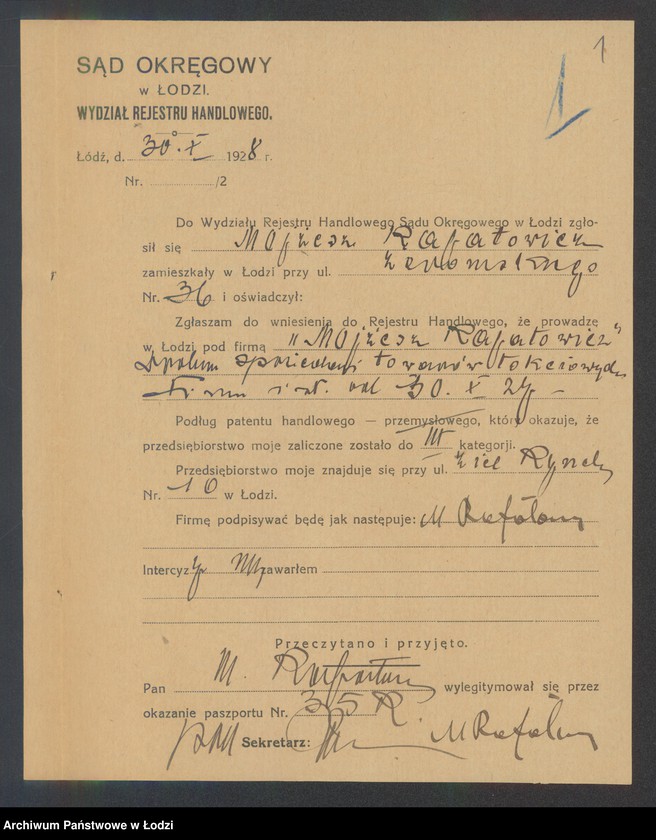 1
1
SĄD OKRĘGOWY
W ŁODZI.
WYDZIAŁ REJESTRU HANDLOWEGO.
Łódź, d. 30.X 1928 r.
Nr. /2
Do Wydziału Rejestru Handlowego Sądu Okręgowego w Łodzi zgło-
sił się Mojżesz Rafałowicz
zamieszkały w Łodzi przy ul. Żeromskiego
Nr. 36 i oświadczył:
Zgłaszam do wniesienia do Rejestru Handlowego, że prowadzę
w Łodzi pod firmą "Mojżesz Rafałowicz"
towarów łokciowych
Firma od 30. X 27 -
Podług patentu handlowego — przemysłowego, który okazuje, że
przedsiębiorstwo moje zaliczone zostało do III kategorji.
Przedsiębiorstwo moje znajduje się przy ul. Rynek
Nr. 10 w Łodzi.
Firmę podpisywać będę jak następuje: M
Intercyzy zawarłem
Przeczytano i przyjęto.
Pan M. wylegitymował się przez
okazanie paszportu Nr. 35
Sekretarz: M
Archiwum Państwowe w Łodzi